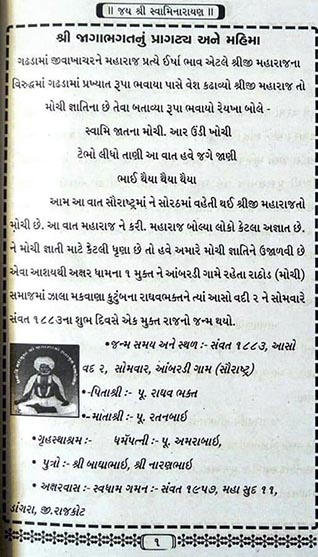 ॥ જય શ્રી સ્વામિનારાયણ ॥
શ્રી જાગાભગતનું પ્રાગટ્ય અને મહિમા
ગઢડામાં જીવાખાચરને મહારાજ પ્રત્યે ઈર્ષા ભાવ એટલે શ્રીજી મહારાજના
વિરુદ્ધમાં ગઢડામાં પ્રખ્યાત રૂપા ભવાયા પાસે વેશ કઢાવ્યો શ્રીજી મહારાજ તો
મોચી જ્ઞાતિના છે તેવા બતાવ્યા રૂપા ભવાયો રેયખા બોલે -
સ્વામિ જાતના મોચી. આર ઉંડી ખોચી
ટેભો લીધો તાણી આ વાત હવે જગે જાણી
ભાઈ થૈયા થૈયા થૈયા
આમ આ વાત સૌરાષ્ટ્રમાં ને સોરઠમાં વહેતી થઈ શ્રીજી મહારાજતો
મોચી છે. આ વાત મહારાજ ને કરી. મહારાજ બોલ્યા લોકો કેટલા અજ્ઞાત છે.
ને મોચી જ્ઞાતી માટે કેટલી ધૃણા છે તો હવે અમારે મોચી જ્ઞાતિને ઉજાળવી છે
એવા આશયથી અક્ષર ધામના ૧ મુક્ત ને આંબરડી ગામે રહેતા રાઠોડ (મોચી)
સમાજમાં ઝાલા મકવાણા કુટુંબના રાઘવભક્તને ત્યાં આસો વદી ૨ ને સોમવારે
સંવત ૧૮૮૩ના શુભ દિવસે એક મુક્ત રાજનો જન્મ થયો.
•જન્મ સમય અને સ્થળ :- સંવત ૧૮૮૩, આસો
વદ ૨, સોમવાર, આંબરડી ગામ (સૌરાષ્ટ્ર)
•-પિતાશ્રી :- પૂ. રાઘવ ભક્ત
•-માતાશ્રી :- પૂ. રતનબાઈ
•ગૃહસ્થાશ્રમ:- ધર્મપત્ની :- પૂ. અમરાબાઈ,
• પુત્રો :- શ્રી બાઘાભાઈ, શ્રી નારણભાઈ
• અક્ષરવાસ :- સ્વધામ ગમન :- સંવત ૧૯૫૭, મહા સુદ ૧૧,
ડાંગરા, જી.રાજકોટ
૧